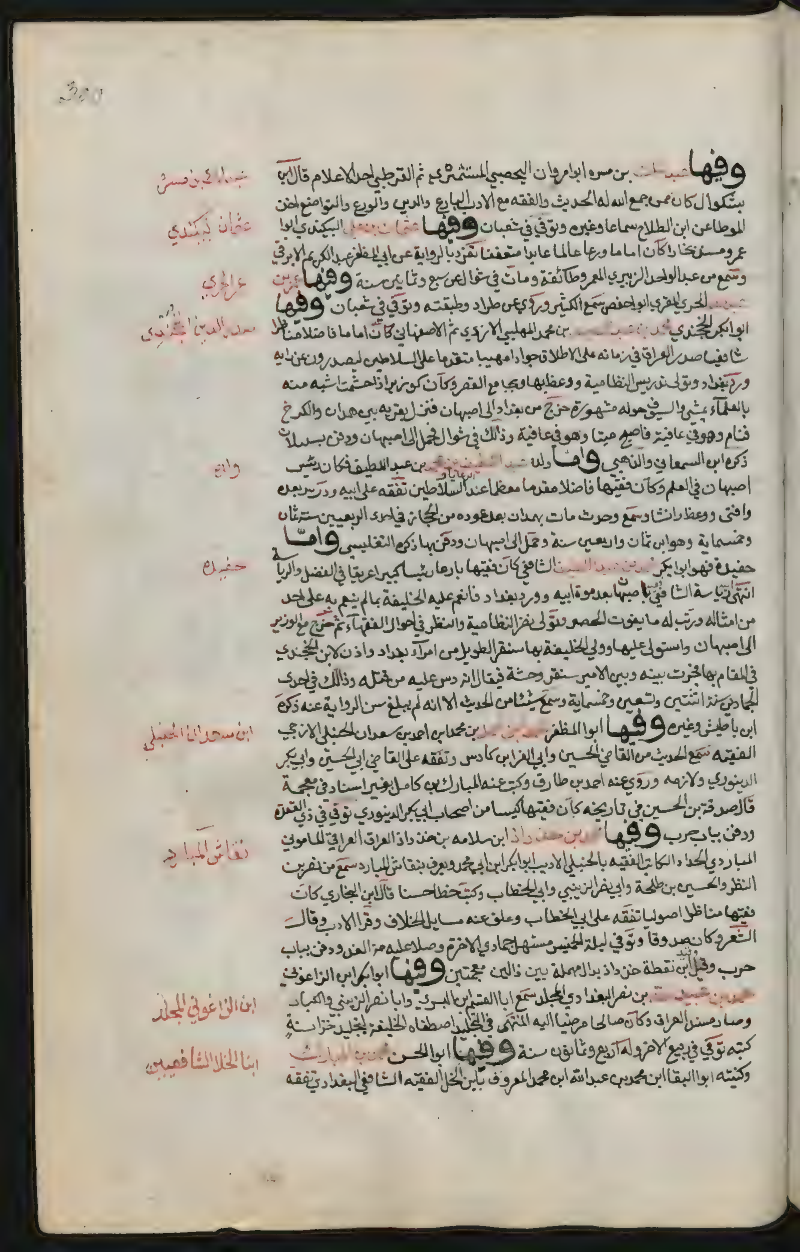 وفيها عبد الملك بن مسرة ابو مروان اليحصبي الشنتمري ثم القرطبي احد الاعلام قال ابن
بشكوال كان ممن جمع الله له الحديث والفقه مع الادب البارع والدين والورع والتواضع اخذ
الموطا عن ابن الطلاع سماعا وغيره وتوفي في شعبان وفيها عثمان بن علي البيكندي ابو
عمرو مسند بخارا كان اماما ورعا عالما عابدا متعففا تفرد بالرواية عن ابي المظفر عبد الكريم الاندقي
وسمع من عبد الواحد الزبيري المعمر وطائفة ومات في شوال عن سبع وثمانين سنة وفيها عمر بن
الحربي المقري ابو حفص سمع الكثير وروى عن طراد وطبقته وتوفي في شعبان وفيها
ابو بكر الخجندي محمد بن عبد اللطيف بن محمد المهلبي الازدي ثم الاصفهاني كان اماما فاضلا مناظرا
شافعيا صدر العراق في زمانه على الاطلاق جوادا مهيبا متقدما على السلاطين يصدرون عن رايه
ورد بغداد وتولى تدريس النظامية ووعظ بها وبجامع القصر وكان كوزير اذا حشمة اشبه منه
بالعلماء يمشي والسيوف حوله مشهورة خرج من بغداد الى اصبهان فنزل بقرية بين همدان والكرخ
فنام وهو في عافية فاصبح ميتا وهو في عافية وذلك في شوال فحمل الى اصبهان ودفن
ذكره ابن السمعاني والذهبي واما ولده عبد اللطيف بن محمد بن عبد اللطيف فكان رئيس
اصبهان في العلم وكان فقيها فاضلا مقدما معظما عند السلاطين تفقه على ابيه ودرس بعده
وافتى ووعظ وانشا وسمع وحدث مات بهمدان بعد عوده من الحجاز في احدى الربيعين سنة ثمان
وخمسماية وهو ابن ثمان واربعين سنة وحمل الى اصبهان ودفن بها ذكره التفليسي واما
حفيده فهو ابو بكر محمد بن عبد اللطيف الشافعي كان فقيها بارعا رئيسا كبيرا عريقا في الفضل والرياسة
انتهت رياسة الشافعية باصبهان بعد موت ابيه وورد بغداد فانعم عليه الخليفة بما لم ينعم به على احد
من امثاله ورتب له ما يفوت الحصر وتولى نظر النظامية والنظر في احوال الفقهاء ثم خرج مع الوزير
الى اصبهان واستولى عليها وولي الخليفة بها سنقر الطويل من امراء بغداد واذن لابن الخجندي
في المقام بها فجرت بينه وبين الامير سنقر وحشة فيقال انه دس عليه من قتله وذلك في احدى
الجمادين سنة اثنتين وتسعين وخمسماية وسمع شيئا من الحديث الا انه لم يبلغ سن الرواية عنه ذكره
ابن باطيش وغيره وفيها ابو المظفر بن محمد بن احمد بن سعدان الحنبلي الازجي
الفقيه سمع الحديث من القاضي الحسين وابي العز ابن كادس وتفقه على القاضي ابي الحسين وابي بكر
الدينوري ولازمه وروى عنه احمد بن طارق وكتب عنه المبارك بن كامل بغير اسناد في معجمه
قال صدقة بن الحسين في تاريخه كان فقيها كيسا من اصحاب ابي بكر الدينوري توفي في ذي القعدة
ودفن بباب حرب وفيها محمد بن خذاداذ ابن سلامه بن خذاداذ العراق العراقي الماموني
المباردي الحداد الكاتب الفقيه الحنبلي الاديب ابو بكر ابن ابي محمد ويعرف بنقاش المبارد سمع من نصر بن
النظر والحسين بن طلحة وابي نصر الزينبي وابي الخطاب وكتب خطا حسنا قال ابن النجار كان
فقيها مناظرا اصوليا تفقه على ابي الخطاب وعلق عنه مسايل الخلاف وقرا الادب وقال
الشعر وكان صدوقا وتوفي ليلة الخميس مستهل جمادي الاخرة وصلا عليه من الغد ودفن بباب
حرب وقيل ابن نقطة خذاداذ بدال مهملة بين ذالين معجمتين وفيها ابو بكر ابن الزاغوني
محمد بن عبيد الله بن نصر البغدادي المجلد سمع ابا القاسم ابن البسري وابا نصر الزينبي والكبار
وصار مسند العراق وكان صالحا مرضيا اليه المنتهى في التجليد اصطفاه الخليفة لتجليد خزانة
كتبه توفي في ربيع الاخر وله اربع وثمانون سنة وفيها ابو الحسن محمد بن المبارك
وكنيته ابو البقا ابن محمد بن عبد الله ابن محمد المعروف بابن الخل الفقيه الشافعي البغدادي تفقه
عثمان بيكندي
عمر الحربي
صدر الدين الخجندي
وابنه
حفيده
ابن سعدان الحنبلي
نقاش المبارد
ابن الزاغوني المجلد
ابنا الخل الشافعيين